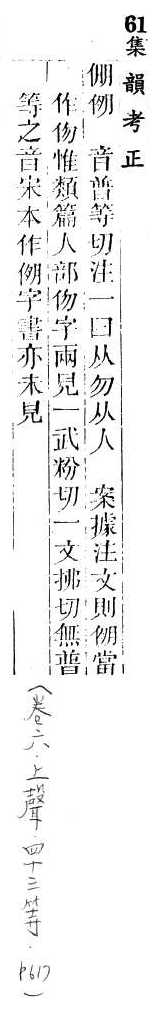 61集韻考正
倗㑂　音普等切注一曰从勿从人　案據注文則㑂當
作伆惟類篇人部伆字兩見一武粉切一文拂切無普
等之音宋本作㑂字書亦未見
(卷六·上聲·四十三等·p617)